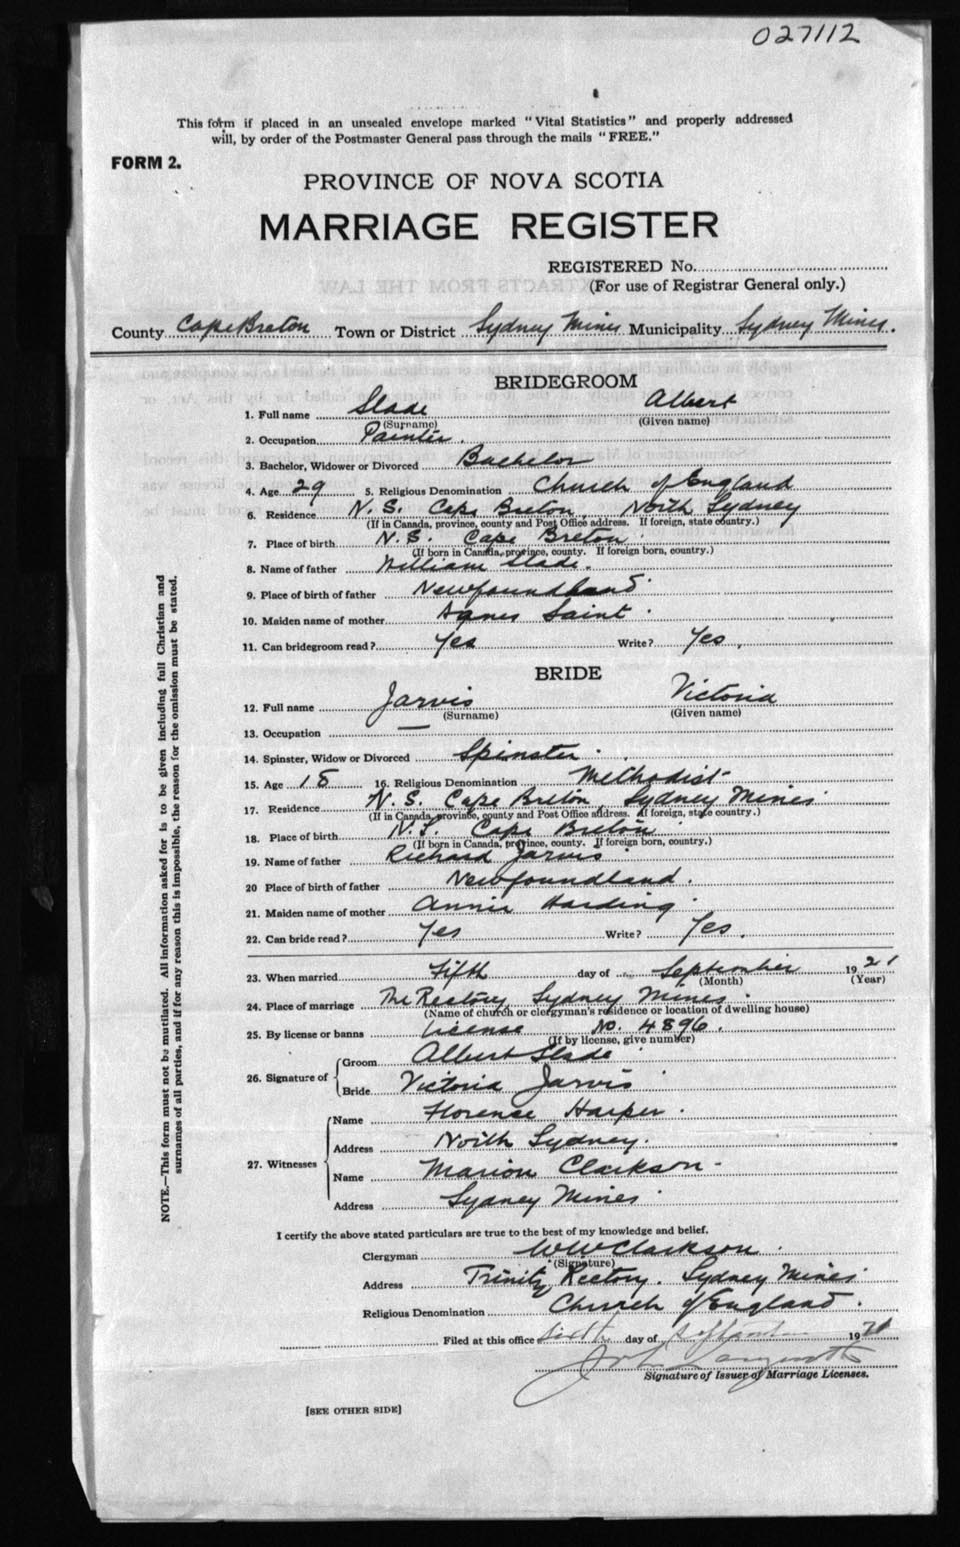 027112
This form if placed in an unsealed envelope marked "Vital Statistics" and properly addressed
will, by order of the Postmaster General pass through the mails "FREE."
FORM 2.
PROVINCE OF NOVA SCOTIA
MARRIAGE REGISTER
REGISTERED No.
(For use of Registrar General only.)
County Cape Breton Town or District Sydney Mines Municipality Sydney Mines.
BRIDEGROOM
1. Full name Slade Albert
(Surname) (Given name)
2. Occupation Painter.
3. Bachelor, Widower or Divorced Bachelor
4. Age 29 5. Religious Denomination Church of England
6. Residence N. S. Cape Breton, North Sydney
(If in Canada, province, county and Post Office address. If foreign, state country.)
7. Place of birth N. S. Cape Breton
(If born in Canada, province, county. If foreign born, country.)
8. Name of father William Slade.
9. Place of birth of father Newfoundland.
10. Maiden name of mother Agnes Saint.
11. Can bridegroom read? Yes Write? Yes,
BRIDE
12. Full name Jarvis Victoria
(Surname) (Given name)
13. Occupation —
14. Spinster, Widow or Divorced Spinster.
15. Age 18 16. Religious Denomination Methodist
17. Residence N. S. Cape Breton, Sydney Mines
(If in Canada, province, county and Post Office address. If foreign, state country.)
18. Place of birth N. S. Cape Breton
(If born in Canada, province, county. If foreign born, country.)
19. Name of father Richard Jarvis
20 Place of birth of father Newfoundland.
21. Maiden name of mother Annie Harding.
22. Can bride read? Yes Write? Yes.
23. When married Fifth day of September 1921
(Month) (Year)
24. Place of marriage The Rectory Sydney Mines.
(Name of church or clergyman's residence or location of dwelling house)
25. By license or banns License No. 4896.
(If by license, give number)
26. Signature of Groom Albert Slade
Bride Victoria Jarvis
27. Witnesses Name Florence Harper.
Address North Sydney.
Name Marion Clarkson
Address Sydney Mines
I certify the above stated particulars are true to the best of my knowledge and belief.
Clergyman W W Clarkson.
(Signature)
Address Trinity Rectory. Sydney Mines
Religious Denomination Church of England.
Filed at this office Sixth day of September 1921
Signature of Issuer of Marriage Licenses.
[SEE OTHER SIDE]
NOTE.—This form must not be mutilated. All information asked for is to be given including full Christian and
surnames of all parties, and if for any reason this is impossible, the reason for the omission must be stated.